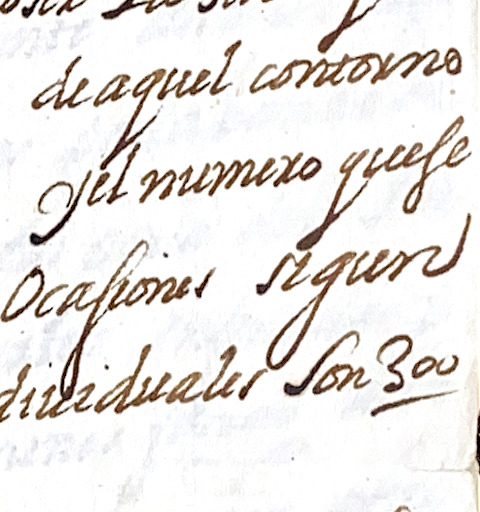 de aquel contorno
y el numero que se
Ocasiones segun
dividuales Son 300